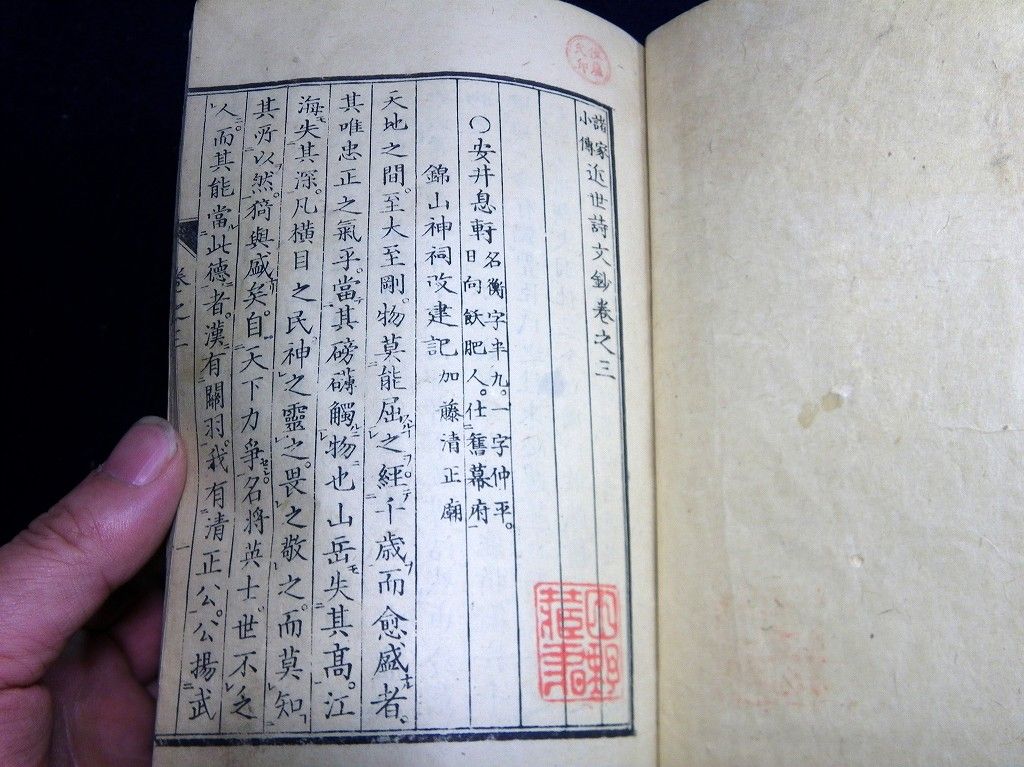 諸家小傳近世詩文鈔卷之三
〇安井息軒名衡字半九。一字仲平。
日向飫肥人。仕舊幕府
錦山神祠改建記加藤清正廟
天地之間。至大至剛。物莫能屈之經千歲而愈盛者。
其唯忠正之氣乎。當其磅礴觸物也山岳失其高。江
海失其深。凡橫目之民神之靈之。畏之敬之。而莫知
其所以然。猗與盛矣。自天下力爭。名將英士世不乏
人。而其能當此德者。漢有關羽。我有清正公。公揚武
卷之三
一